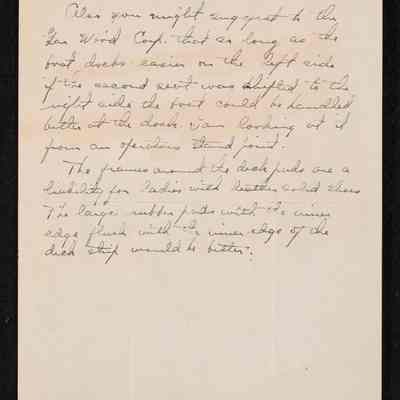 Also you might suggest to the
Gar Wood Corp. that as long as the
boat docks easier on the left side
if the second seat was shifted to the
right side the boat could be handled
better at the dock. I am looking at it
from an operators stand point.
The frames around the deck pads are a
liability for ladies with leather soled shoes
The large rubber pads with the inner
edge flush with the inner edge of the
deck strip would be better.